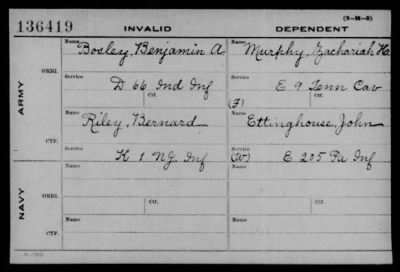 (3-M-3)
136419 INVALID DEPENDENT
Name Bosley, Benjamin A Name Murphy, Zachariah H.
ARMY
ORIG. Service D 66 Ind Inf Service E 9 Tenn Cav
Ctf. Ctf.
(F)
Name Riley, Bernard Name Ettinghouse, John
CTF. Service K 1 NJ Inf Service (W) E 205 Pa Inf
Name Name
NAVY
ORIG. Service Ctf. Service Ctf.
Name Name
CTF. Service Service